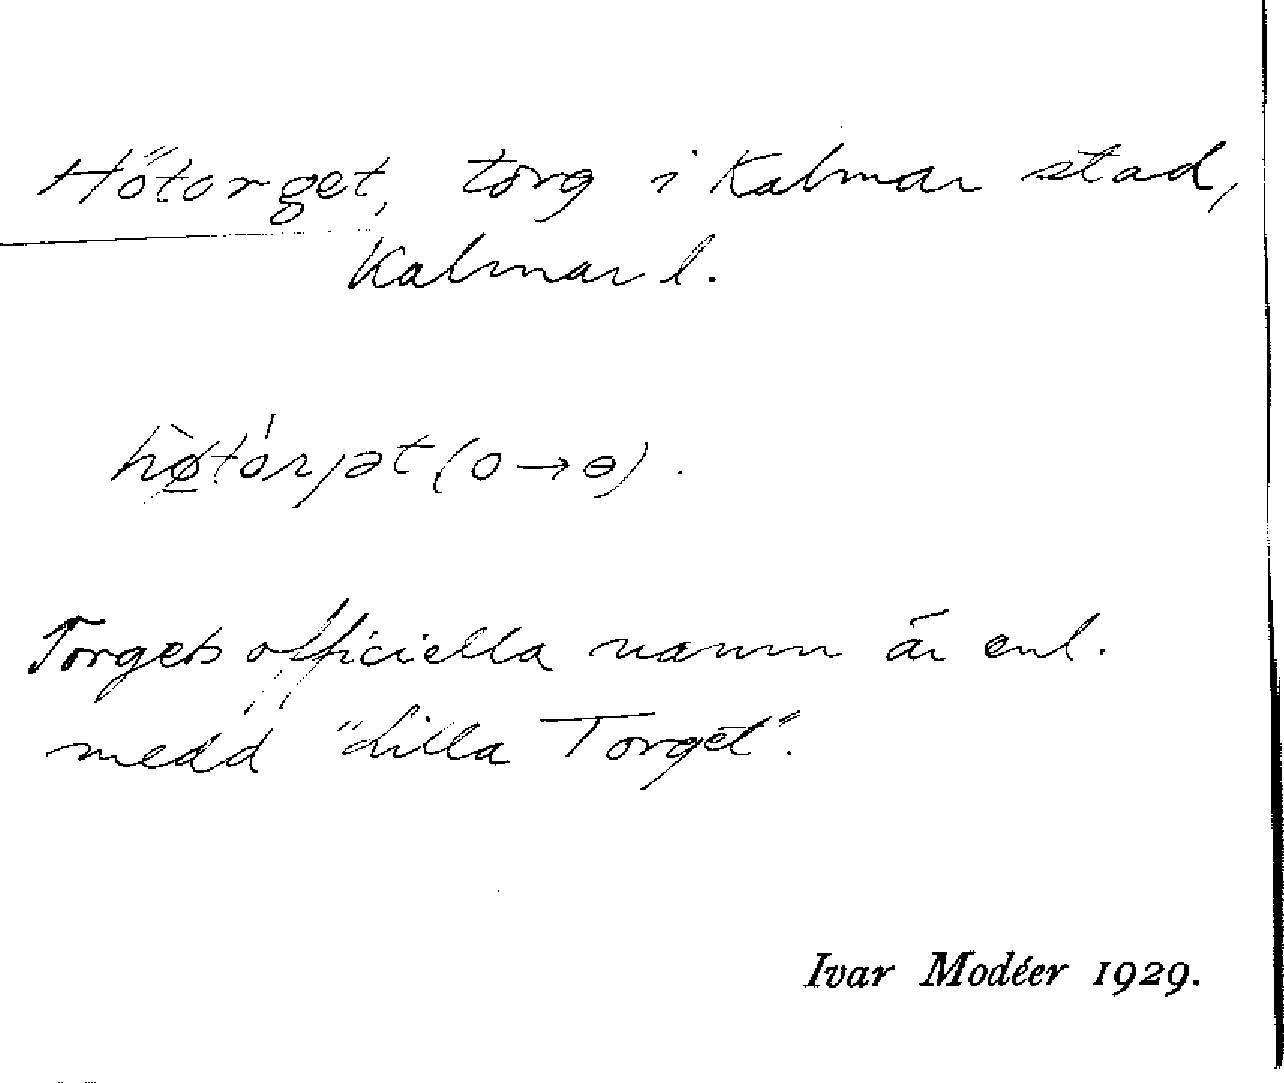 Hötorget, torg i Kalmar stad,
Kalmar l.
hø̀tórjət (o → ɵ).
Torgets officiella namn är enl.
medd "Lilla Torget".
Ivar Modéer 1929.